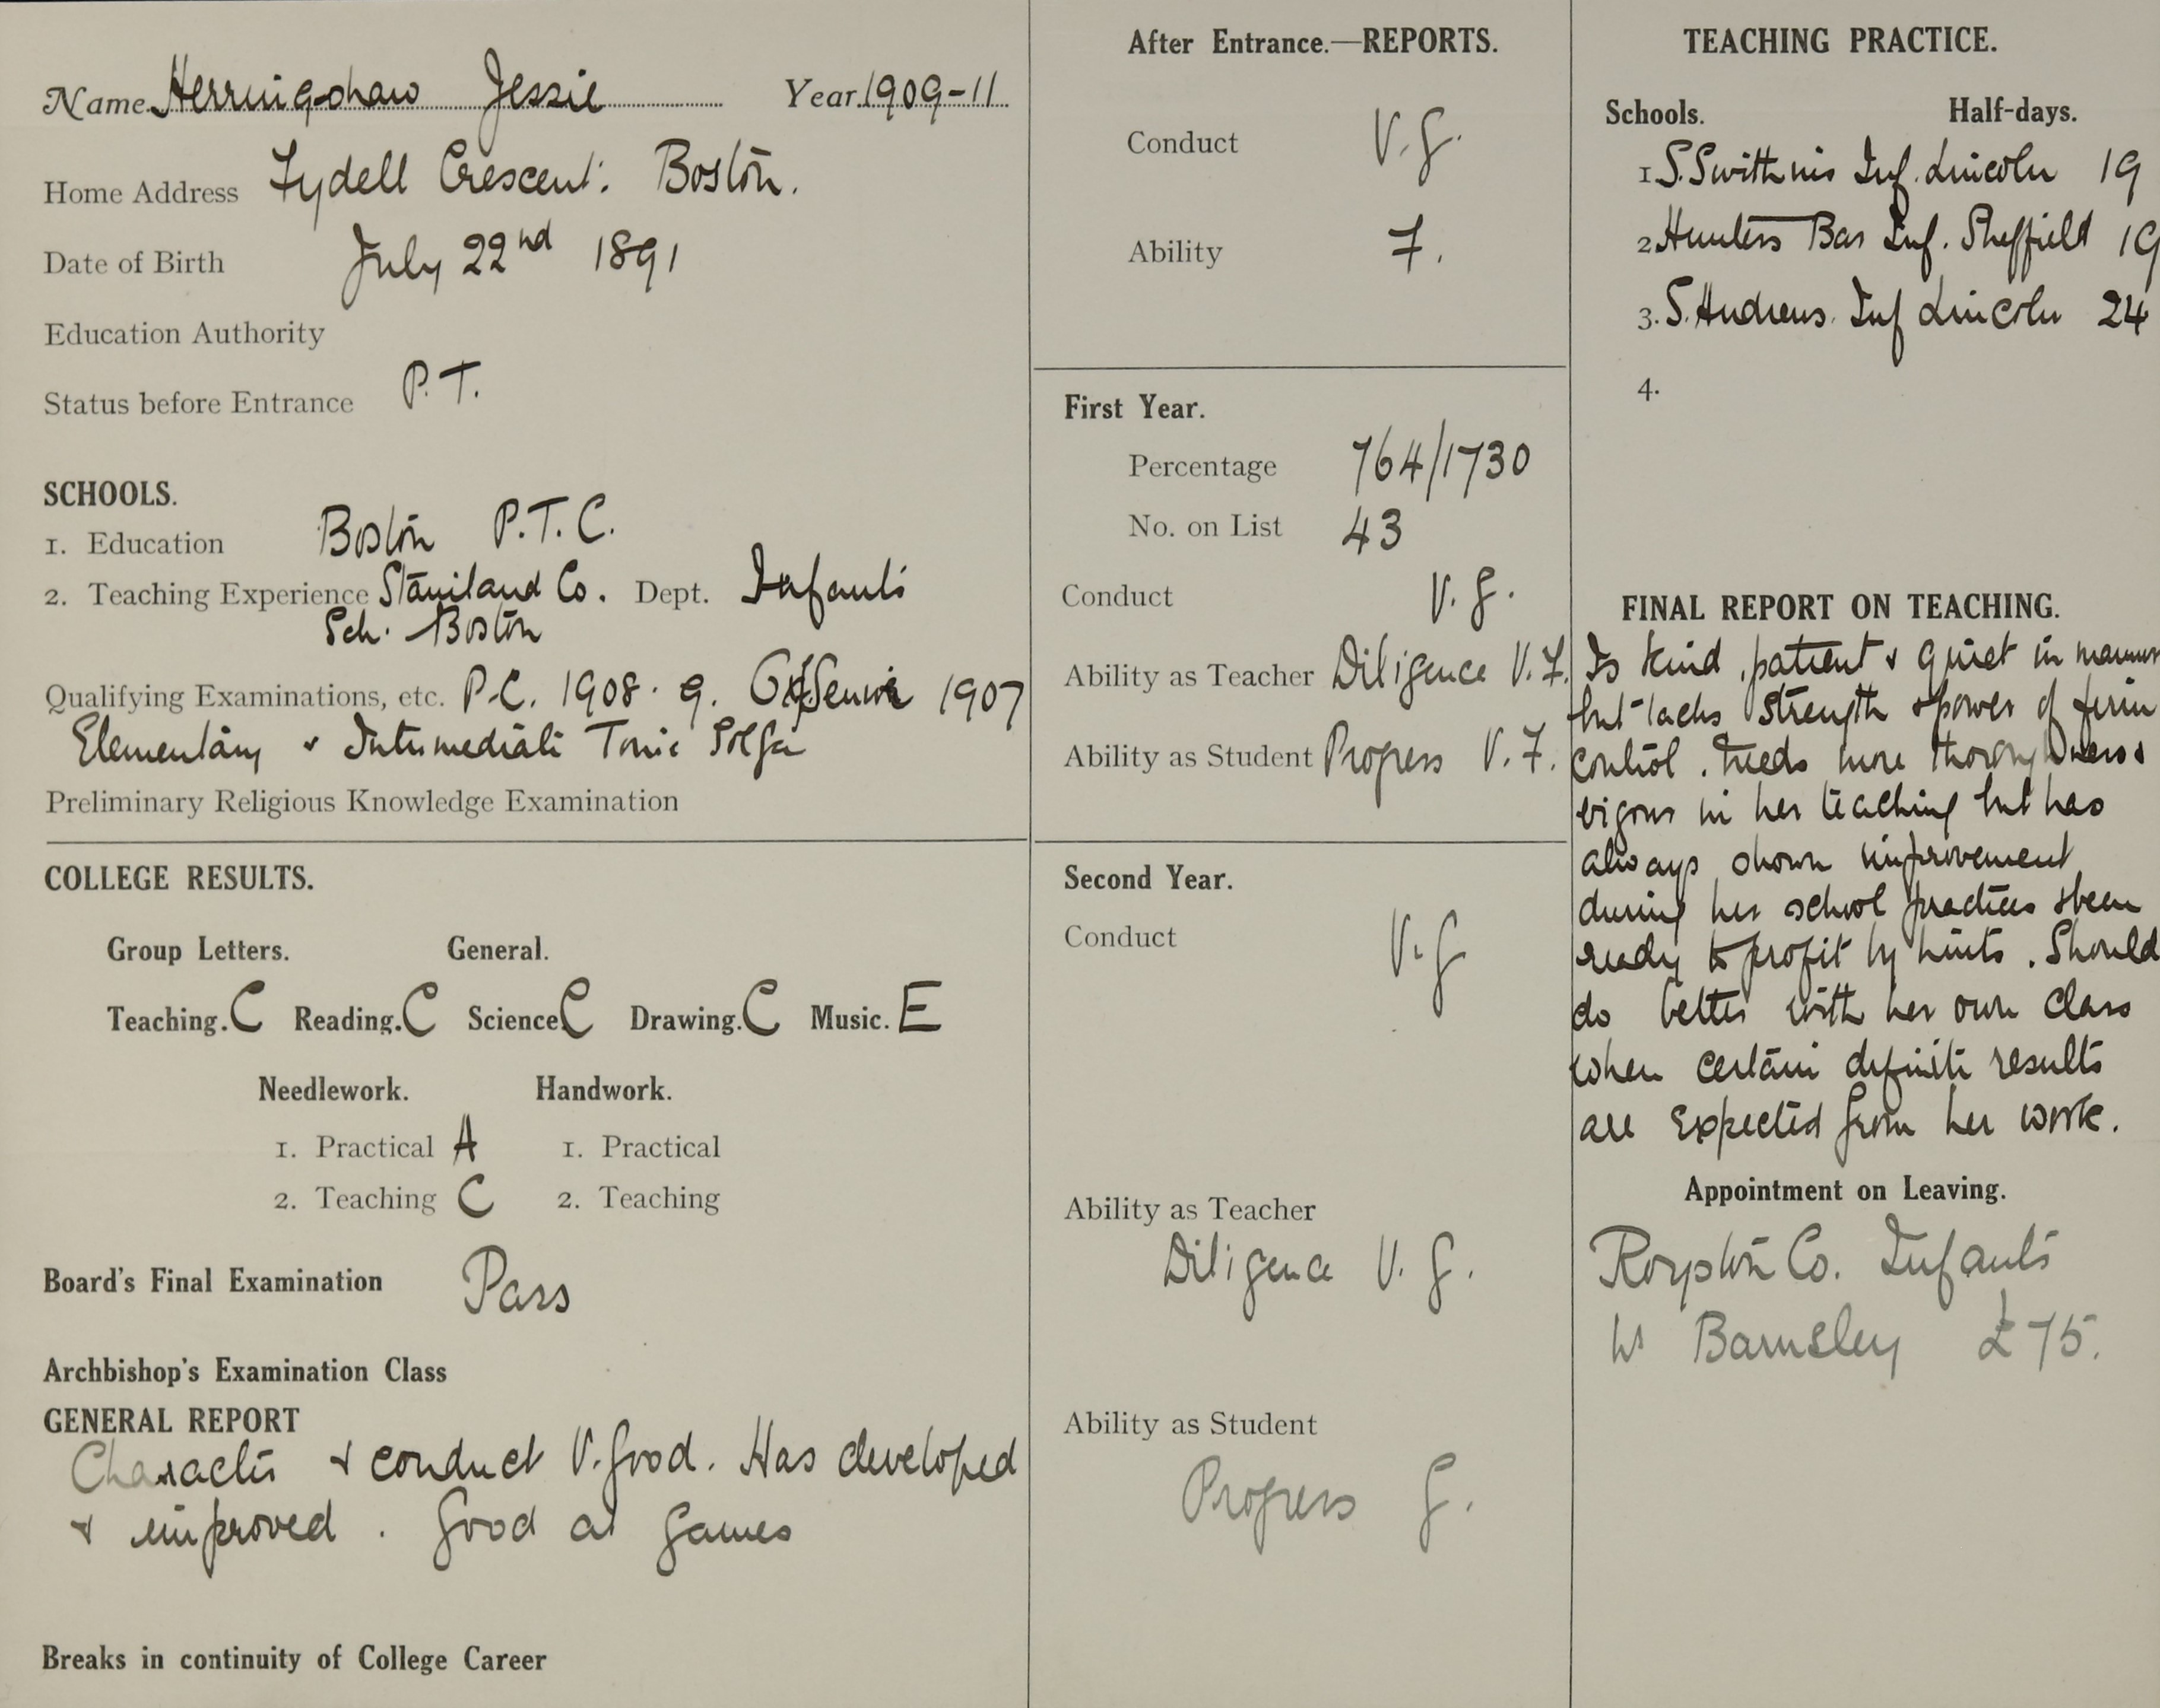 Name Herringshaw Jessie Year 1909-11
Home Address Tydell Crescent. Boston.
Date of Birth July 22nd 1891
Education Authority
Status before Entrance P.T.
SCHOOLS.
1. Education Boston P.T.C.
2. Teaching Experience Staniland Co. Dept. Infants
Sch. Boston
Qualifying Examinations, etc. P.C. 1908. 9. Ox Senior 1907
Elementary & Intermediate Tonic Solfa
Preliminary Religious Knowledge Examination
COLLEGE RESULTS.
Group Letters. General.
Teaching. C Reading. C Science. C Drawing. C Music. E
Needlework. Handwork.
1. Practical A 1. Practical
2. Teaching C 2. Teaching
Board's Final Examination Pass
Archbishop's Examination Class
GENERAL REPORT
Character & conduct V. Good. Has developed
& improved. Good at Games
Breaks in continuity of College Career
After Entrance.—REPORTS.
Conduct V.G.
Ability F.
First Year.
Percentage 764/1730
No. on List 43
Conduct V.G.
Ability as Teacher Diligence V.F.
Ability as Student Progress V.F.
Second Year.
Conduct V.G
Ability as Teacher
Diligence V.G.
Ability as Student
Progress G.
TEACHING PRACTICE.
Schools. Half-days.
1. S. Swithins Inf. Lincoln 19
2. Hunters Bar Inf. Sheffield 19
3. S. Andrews. Inf Lincoln 24
4.
FINAL REPORT ON TEACHING.
Is kind, patient & quiet in manner
but lacks strength & power of firm
control. Needs more thoroughness &
vigour in her teaching but has
always shown improvement
during her school practices & been
ready to profit by hints. Should
do better with her own class
when certain definite results
are expected from her work.
Appointment on Leaving.
Royston Co. Infants
Barnsley £75.